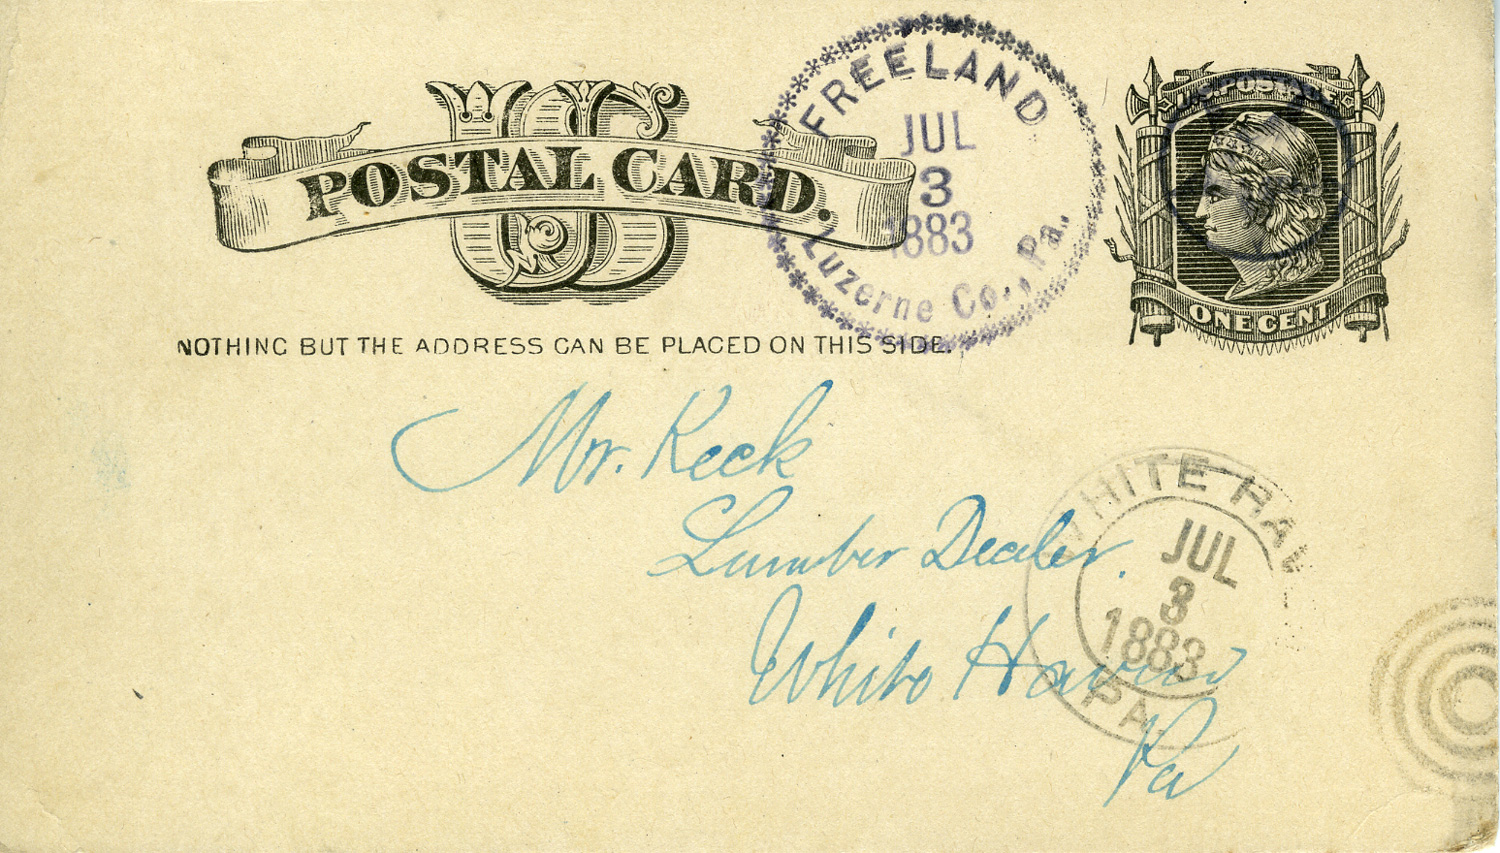 US
POSTAL CARD.
NOTHING BUT THE ADDRESS CAN BE PLACED ON THIS SIDE.
FREELAND
JUL
3
1883
Luzerne Co., Pa.
U.S. POSTAGE
ONE CENT
Mr. Keck
Lumber Dealer.
White Haven
Pa
WHITE HAV
JUL
3
1883
PA.